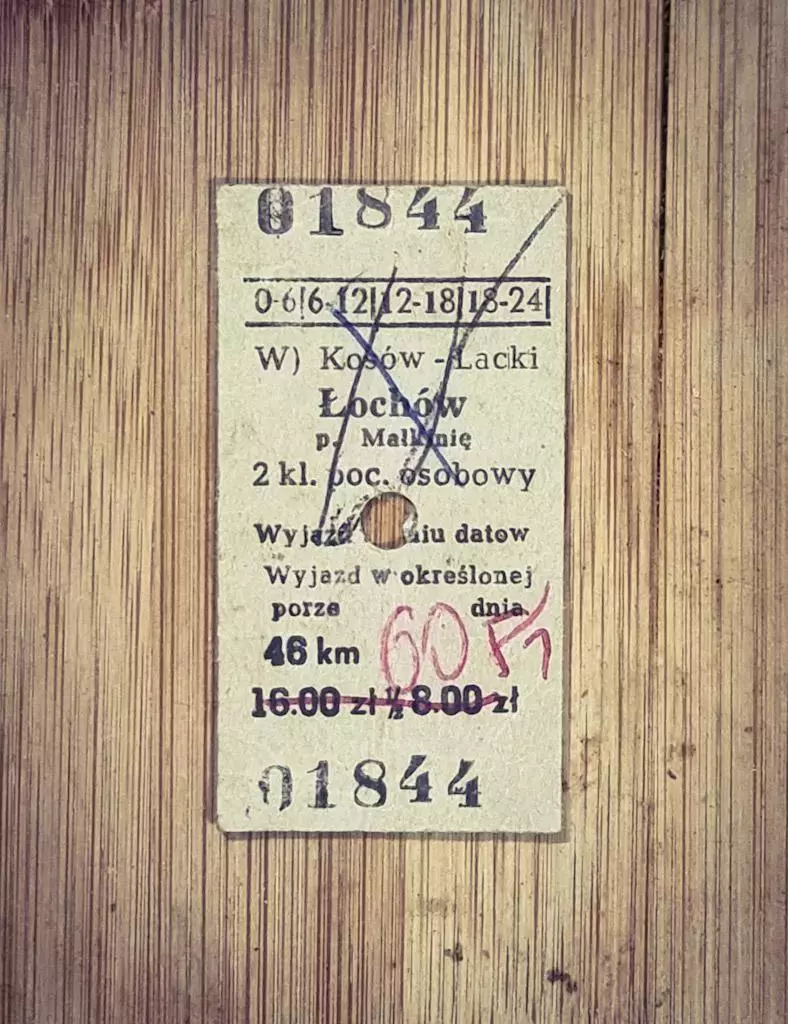 01844
0-6|6-12|12-18|18-24|
W) Kosów - Lacki
Łochów
p. Małkinię
2 kl. poc. osobowy
Wyjazd dniu datow
Wyjazd w określonej
porze dnia
46 km 60
16.00 zł ½ 8.00 zł
01844